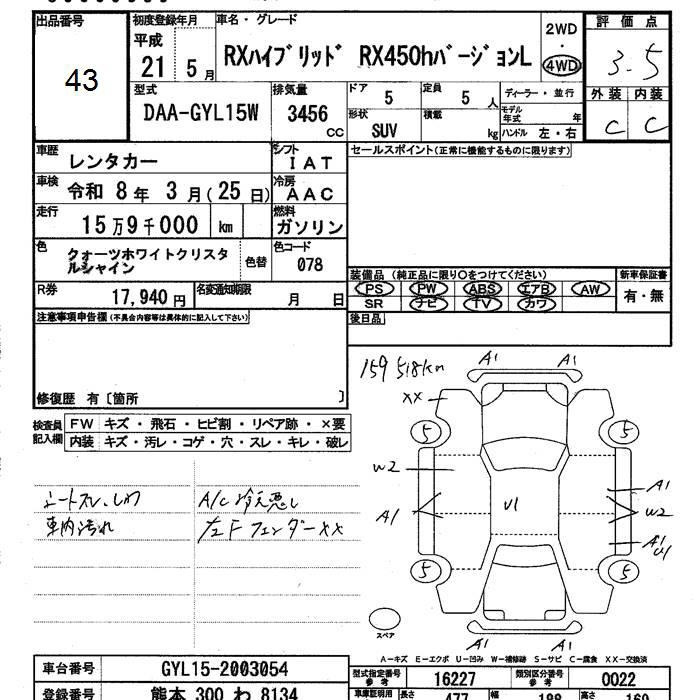 出品番号 初度登録年月 車名・グレード 2WD 評価点
43 平成 21 5月 RXハイブリッド RX450hバージョンL ・ 4WD 3.5
型式 排気量 ドア 定員 ディーラー・並行 外装 内装
DAA-GYL15W 3456 cc 5 5人 モデル年式 年 C C
形状 SUV 積載 kg ハンドル 左・右
車歴 レンタカー シフト IAT セールスポイント(正常に機能するものに限ります)
車検 令和 8年 3月(25日) 冷房 AAC
走行 15万9千000 km 燃料 ガソリン
色 クォーツホワイトクリスタ 色替 色コード
ルシャイン 078
装備品 (純正品に限り○をつけてください) 新車保証書
R券 17,940円 名変通知期限 月 日 PS PW ABS エアB AW 有・無
SR ナビ TV カワ
注意事項申告欄(不具合内容等は具体的に記入して下さい) 後日品
修復歴 有〔箇所 〕
検査員 FW キズ・飛石・ヒビ割・リペア跡・×要
記入欄 内装 キズ・汚レ・コゲ・穴・スレ・キレ・破レ
159518km A1 A1
XX
5 5
W2
シートスレ、シワ A/C 冷え悪し A1 U1 A1
W2
車内汚れ 左FフェンダーXX A1
U1
5 5
スペア A1 A1
A-キズ E-エクボ U-凹み W-補修跡 S-サビ C-腐食 XX-交換済
車台番号 GYL15-2003054 型式指定番号 参考 16227 類別区分番号 参考 0022
登録番号 熊本 300 わ 8134 車庫証明用 長さ 477 幅 188 高さ 169